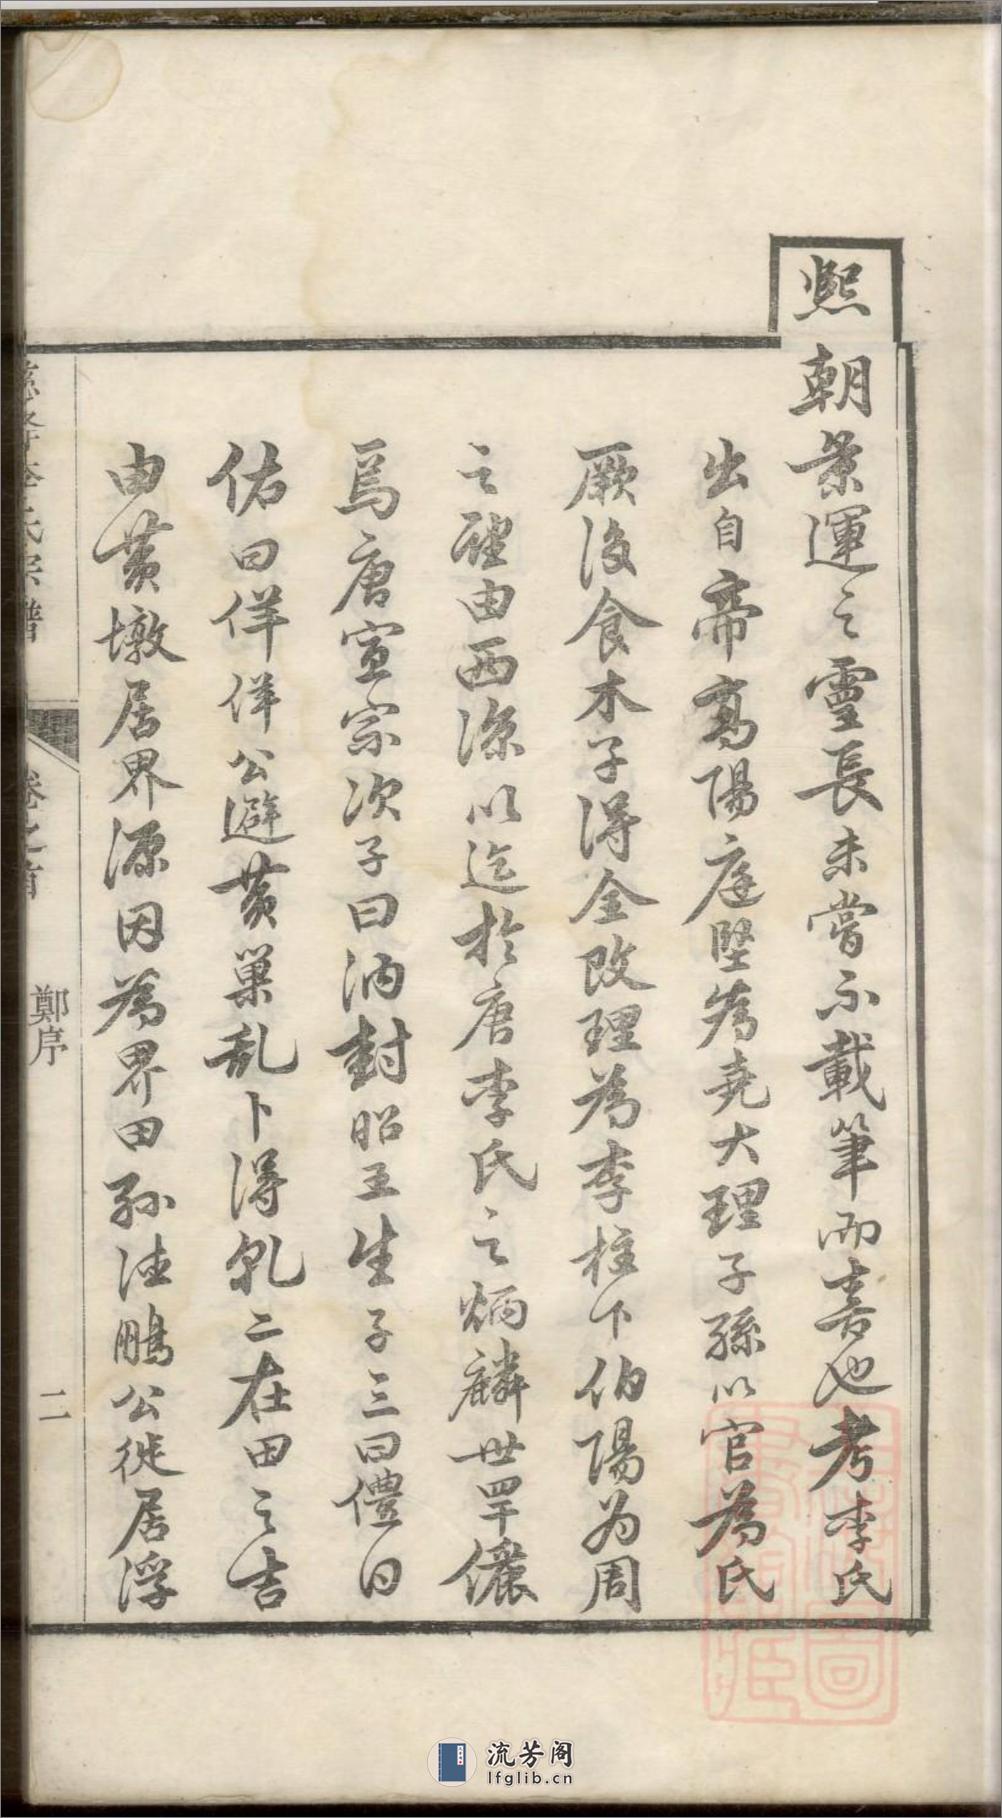 熙朝景運之靈長未嘗不載筆而喜也考李氏
出自帝高陽庭堅為堯大理子孫以官為氏
厥後食木子得全改理為李柱下伯陽為周
之聃由西涼以迄於唐李氏之炳麟世罕儷
焉唐宣宗次子曰汭封昭王生子三曰儇曰
佑曰佯佯公避黃巢乱卜得乾二在田之吉
由黃墩居界源因為界田孫洼鵬公徙居浮
李氏宗譜
卷之首
鄭序
二
流芳阁
lfglib.cn